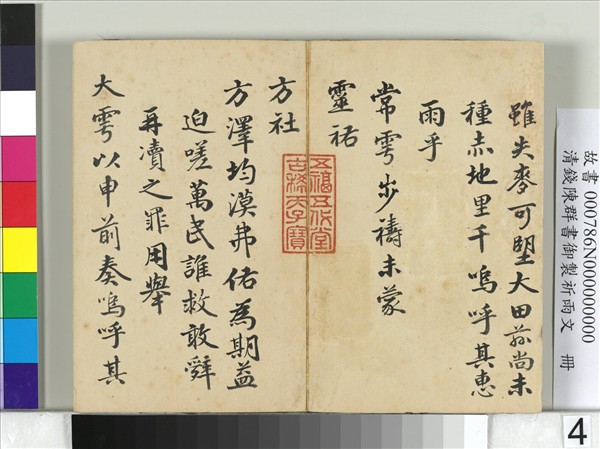 雖失麥可望大田茲尚未
種赤地里千嗚呼其惠
雨乎
常雩步禱未蒙
靈祐
方社
方澤均漠弗佑為期益
迫嗟萬民誰救敢辭
再瀆之罪用舉
大雩以申前奏嗚呼其
五福五代堂
古稀天子寶
故書 000786N000000000
清錢陳群書御製祈雨文 冊
4